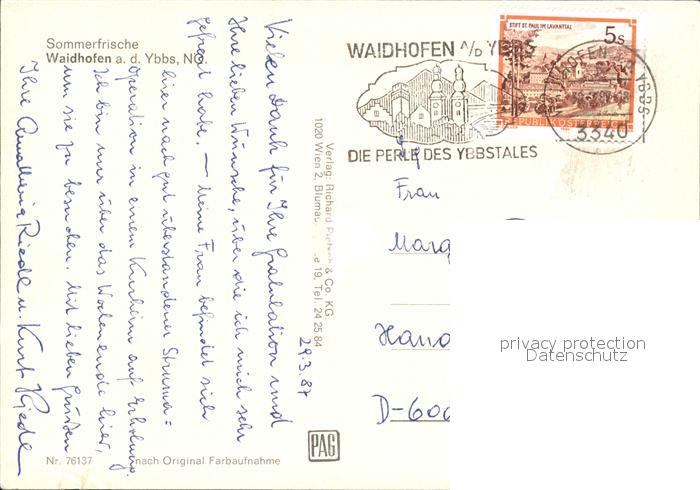 Sommerfrische
Waidhofen a. d. Ybbs, NÖ
Vielen Dank für Ihre Gratulation und
Ihre lieben Wünsche, über die ich mich sehr
gefreut habe. — Meine Frau befindet sich
hier nach gut überstandener Struma=
operation in einem Kurheim auf Erholung.
Ich bin nur über das Wochenende hier,
um sie zu besuchen. Mit lieben Grüßen
Ihre Annaliesia Riedl u. Kurt Riedl
29.3.87
Nr. 76137
nach Original Farbaufnahme
Verlag: Richard & Co. KG
1020 Wien 2, Blumau 19, Tel. 24 25 84
PAG
WAIDHOFEN A/D YBBS
DIE PERLE DES YBBSTALES
STIFT ST. PAUL IM LAVANTTAL
5s
REPUBLIK ÖSTERREICH
3340
Frau
Marg
Hana
D-600
privacy protection
Datenschutz